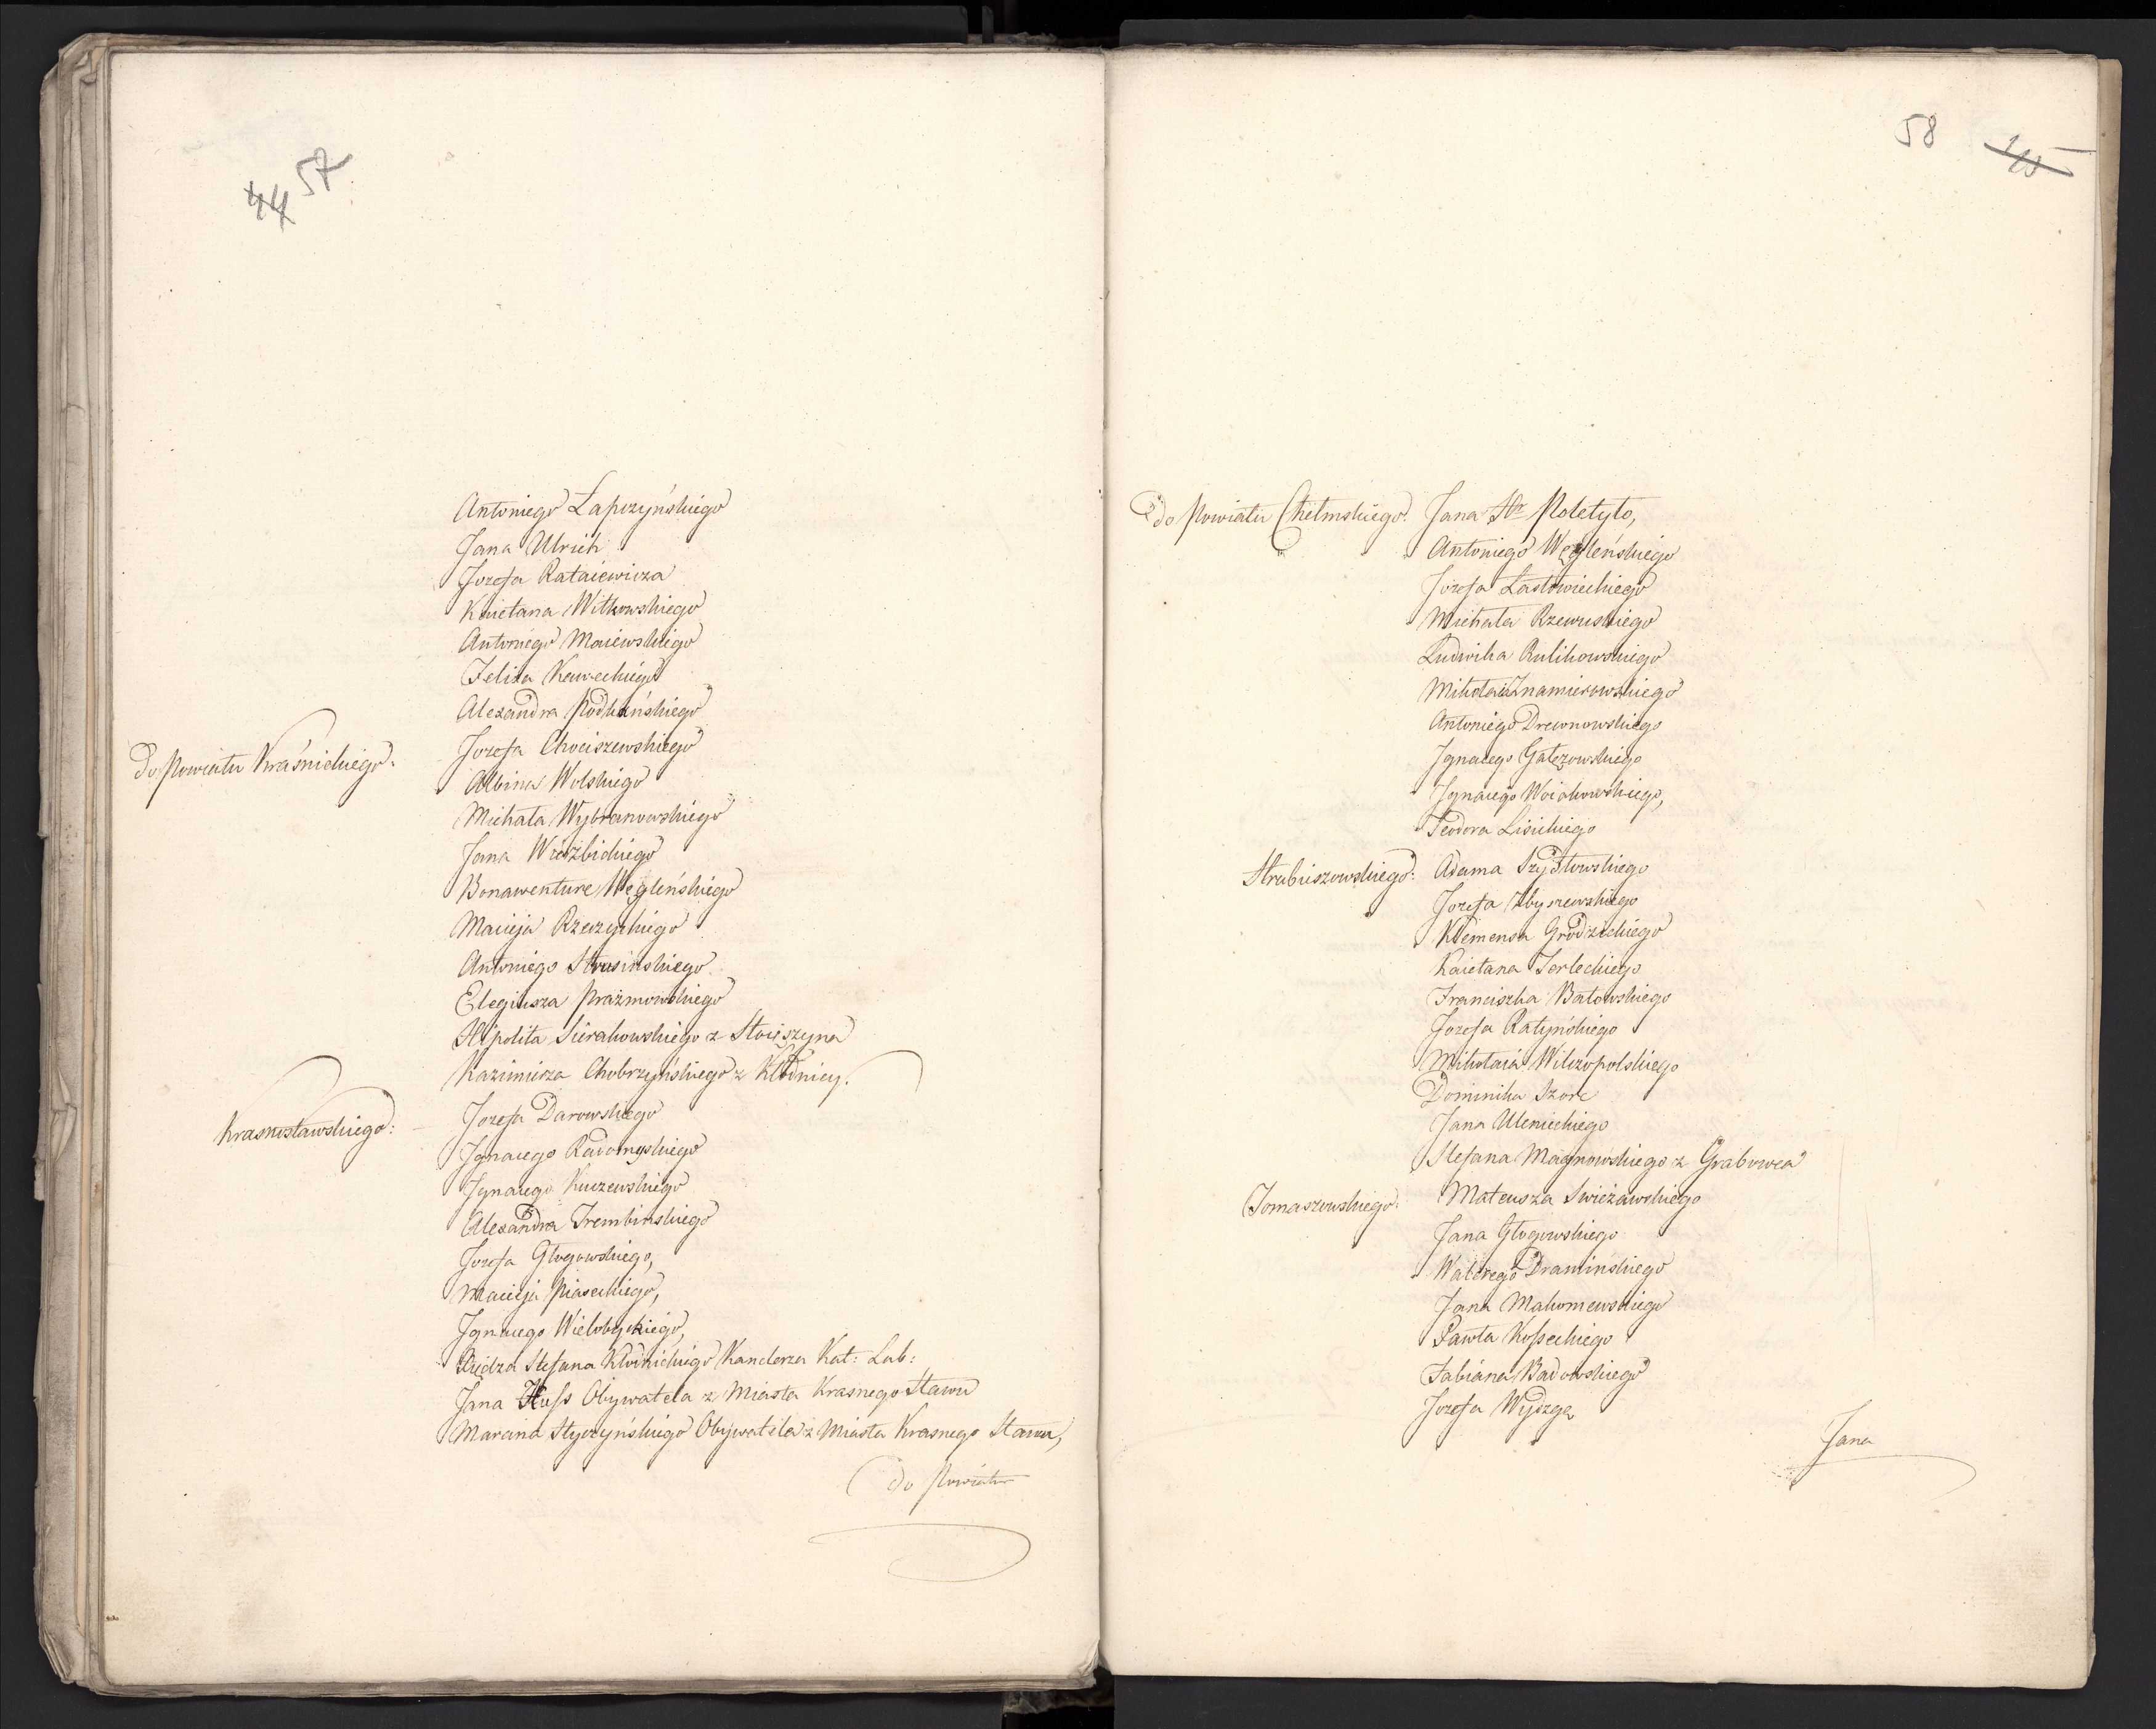 44 57
Antoniego Łapczyńskiego
Jana Ulrich
Jozefa Rataiewicza
Kaietana Witkowskiego
Antoniego Maiewskiego
Felixa Kaweckiego
Alexandra Podkańskiego
do Powiatu Kraśnickiego. Jozefa Chociszewskiego
Albina Wolskiego
Michała Wybranowskiego
Jana Wierzbickiego
Bonawenture Węgleńskiego
Macieja Rzeczyckiego
Antoniego Strusińskiego
Elegiusza Prażmowskiego
Hipolita Sierakowskiego z Stoieszyna
Kazimierza Chobrzyńskiego z Kłodnicy.
Krasnostawskiego: Jozefa Darowskiego
Ignacego Radomyskiego
Ignacego Kuczewskiego
Alexandra Trembinskiego
Jozefa Głogowskiego,
Macieja Piaseckiego,
Ignacego Wielobyckiego,
Xiędza Stefana Kłodnickiego Kanclerza Kat: Lub:
Jana Huss Obywatela z Miasta Krasnego Stawu
Marcina Styczyńskiego Obywatela z Miasta Krasnego Stawu,
do Powiatu
58 45
do Powiatu Chełmskiego. Jana Hr Poletyło,
Antoniego Węgleńskiego
Jozefa Łastowieckiego
Michała Rzewuskiego
Ludwika Kulikowskiego
Mikołaia Znamierowskiego
Antoniego Drewnowskiego
Ignacego Gałęzowskiego
Ignacego Woiakowskiego,
Teodora Lisickiego
Hrubiszowskiego: Adama Szydłowskiego
Jozefa Zbyszewskiego
Klemensa Grodzickiego
Kaietana Terleckiego
Franciszka Batowskiego
Jozefa Ratyńskiego
Mikołaia Wilczopolskiego
Dominika Szorc
Jana Ulenieckiego
Stefana Magnowskiego z Grabowca
Tomaszowskiego. Mateusza Swieżawskiego
Jana Głogowskiego
Walerego Dramińskiego
Jana Makomewskiego
Pawła Kosseckiego
Fabiana Badowskiego
Jozefa Wydzga
Jana